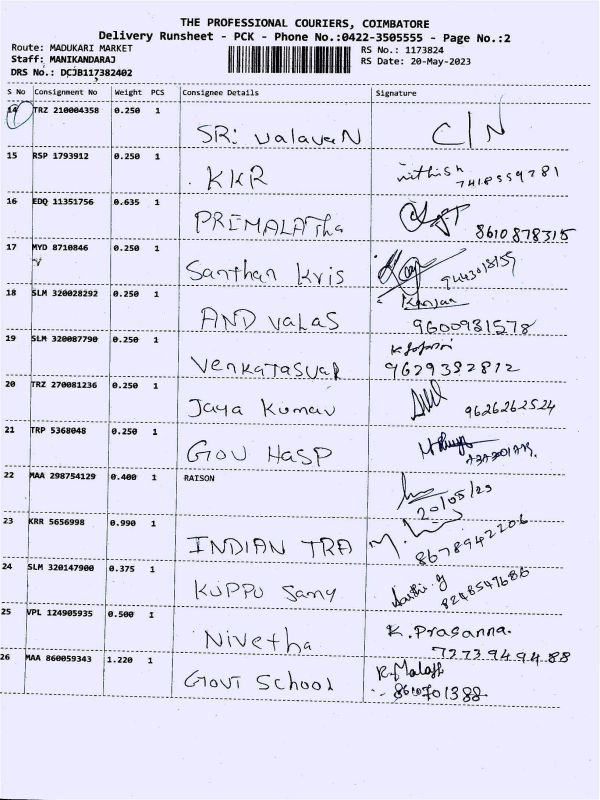 THE PROFESSIONAL COURIERS, COIMBATORE
Delivery Runsheet - PCK - Phone No.:0422-3505555 - Page No.:2
Route: MADUKARI MARKET RS No.: 1173824
Staff: MANIKANDARAJ RS Date: 20-May-2023
DRS No.: DCJB117382402
S No Consignment No Weight PCS Consignee Details Signature
14 TRZ 210004358 0.250 1
SRi valavaN C/N
15 RSP 1793912 0.250 1
KKR nithish
7418559781
16 EDQ 11351756 0.635 1
PREMALATha
8610878315
17 MYD 8710846 0.250 1
Santhan Kris
18 SLM 320028292 0.250 1
AND vaLas 9600931578
19 SLM 320087790 0.250 1
VenKaTASUaR 9629382812
20 TRZ 270081236 0.250 1
Jaya Kumar 9626262524
21 TRP 5368048 0.250 1
GOV HasP
22 MAA 298754129 0.400 1 RAISON
20/05/23
23 KRR 5656998 0.990 1
INDIAN TRA 8678942206
24 SLM 320147900 0.375 1
KUPPU Samy 8248547686
25 VPL 124905935 0.500 1
Nivetha K. Prasanna.
7373949488
26 MAA 860059343 1.220 1
GOVT SCHOOL